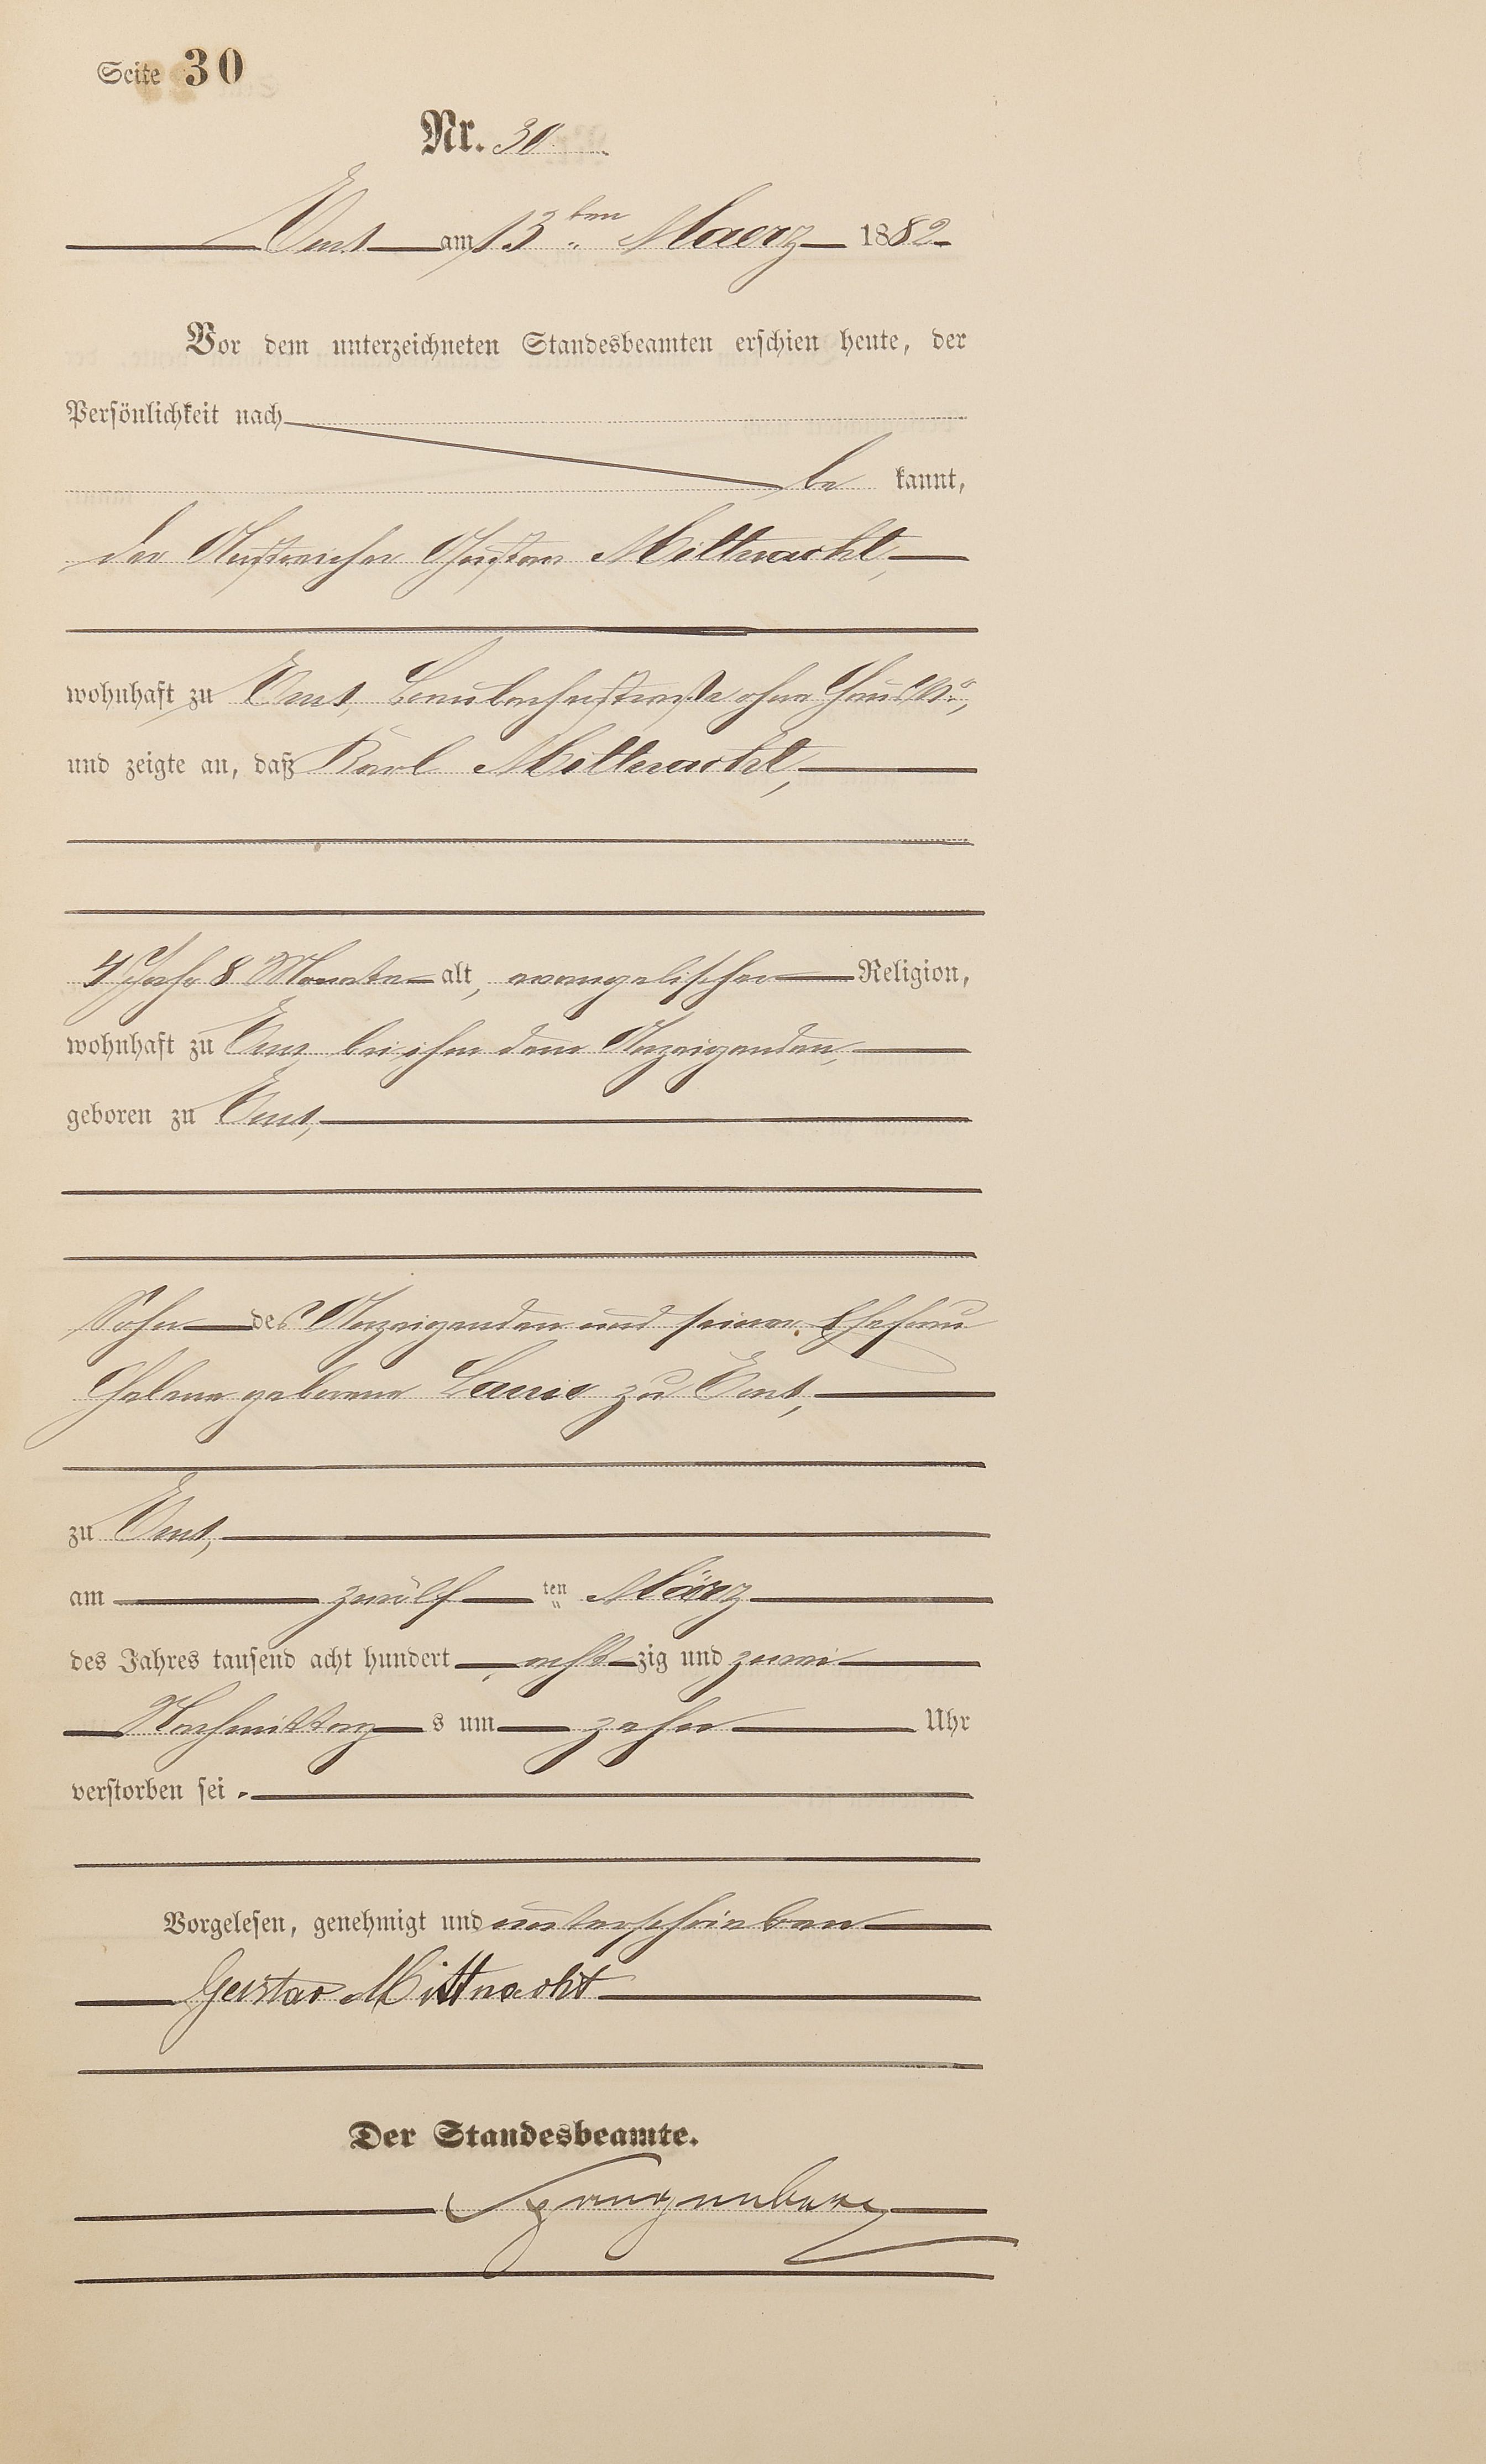 Seite 30
Nr. 30
Ems am 13ten Maerz 1882
Vor dem unterzeichneten Standesbeamten erschien heute, der
Persönlichkeit nach
be kannt,
der Anstreicher Gustav Mittnacht,
wohnhaft zu Ems, ohne Haus No,
und zeigte an, daß Karl Mittnacht,
4 Jahr 8 Monate alt, evangelischer Religion,
wohnhaft zu Ems bei ihm dem Anzeigenden,
geboren zu Ems,
Sohn des Anzeigenden und seiner Ehefrau
Helene geborene zu Ems,
zu Ems,
am zwölf ten März
des Jahres tausend acht hundert acht zig und zwei
Nachmittag s um zehn Uhr
verstorben sei.
Vorgelesen, genehmigt und unterschrieben
Gustav Mittnacht
Der Standesbeamte.